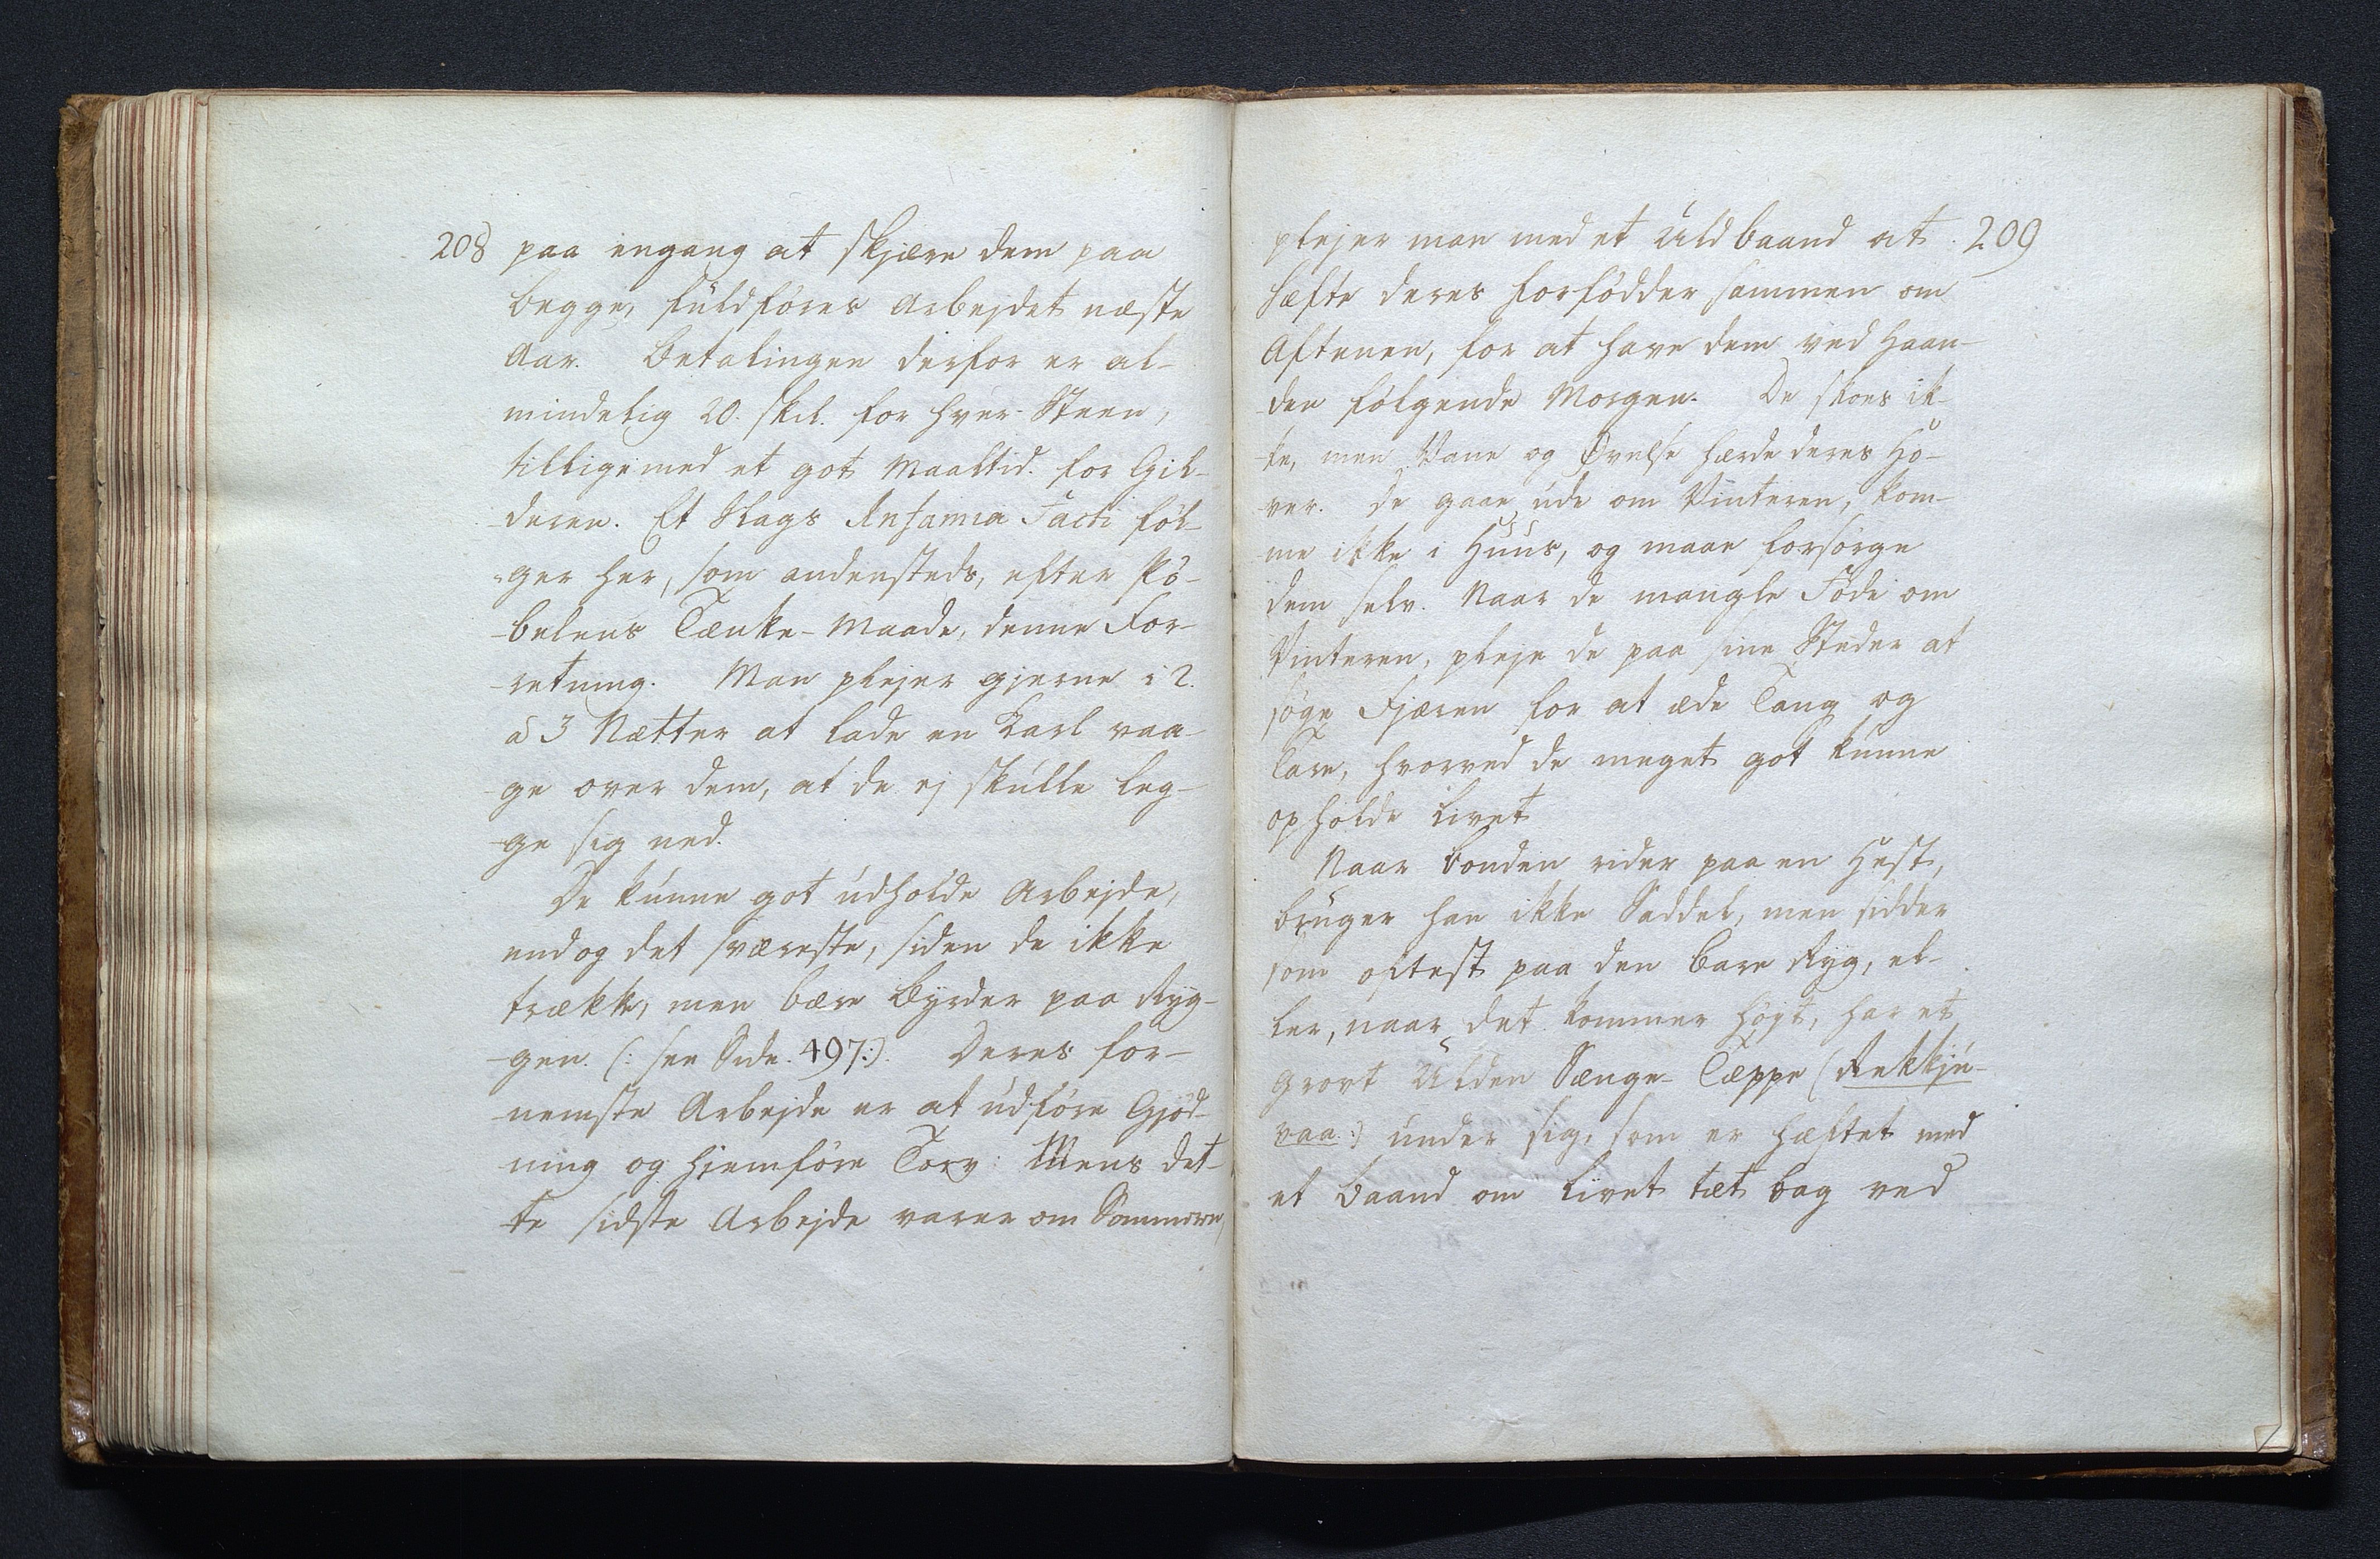 208 paa engang at skjære dem paa
begge, fuldføres Arbejdet næste
Aar. Betalingen derfor er al-
mindelig 20. skil. for hver Steen,
tilligemed et got Maaltid for Gil-
deren. Et Slags Infamia Facti føl-
-ger her, som andensteds, efter Pø-
-belens Tænke-Maade, denne For-
-retning. Man plejer gjerne i 2.
à 3 Nætter at lade en Karl vaa-
-ge over dem, at de ej skulle leg-
-ge sig ned.
De kunne got udholde Arbejde,
endog det sværeste, siden de ikke
trække, men bære Byrder paa Ryg-
-gen. (: see Side. 497:). Deres for-
-nemste Arbejde er at udføre Gjød-
ning og hjemføre Torv: Mens det-
-te sidste Arbejde varer om Sommeren,
plejer man med et Uldbaand at 209
hæfte deres Forfødder sammen om
Aftenen, for at have dem ved Haan-
-den følgende Morgen. De skoes ik-
-ke, men Vane og Øvelse hærde deres Ho-
-ver. De gaae ude om Vinteren, kom-
-me ikke i Huus, og maae forsørge
dem selv. Naar de mangle Føde om
Vinteren, pleje de paa sine Steder at
søge Fjæren for at æde Tang og
Tare, hvorved de meget got kunne
opholde Livet
Naar Bonden rider paa en Hest,
bruger han ikke Saddel, men sidder
som oftest paa den bare Ryg, el-
ler, naar det kommer højt, har et
Grovt Ulden Senge-Tæppe (Rekkju-
vaa:) under sig, som er hæftet med
et Baand om Livet tæt bag ved